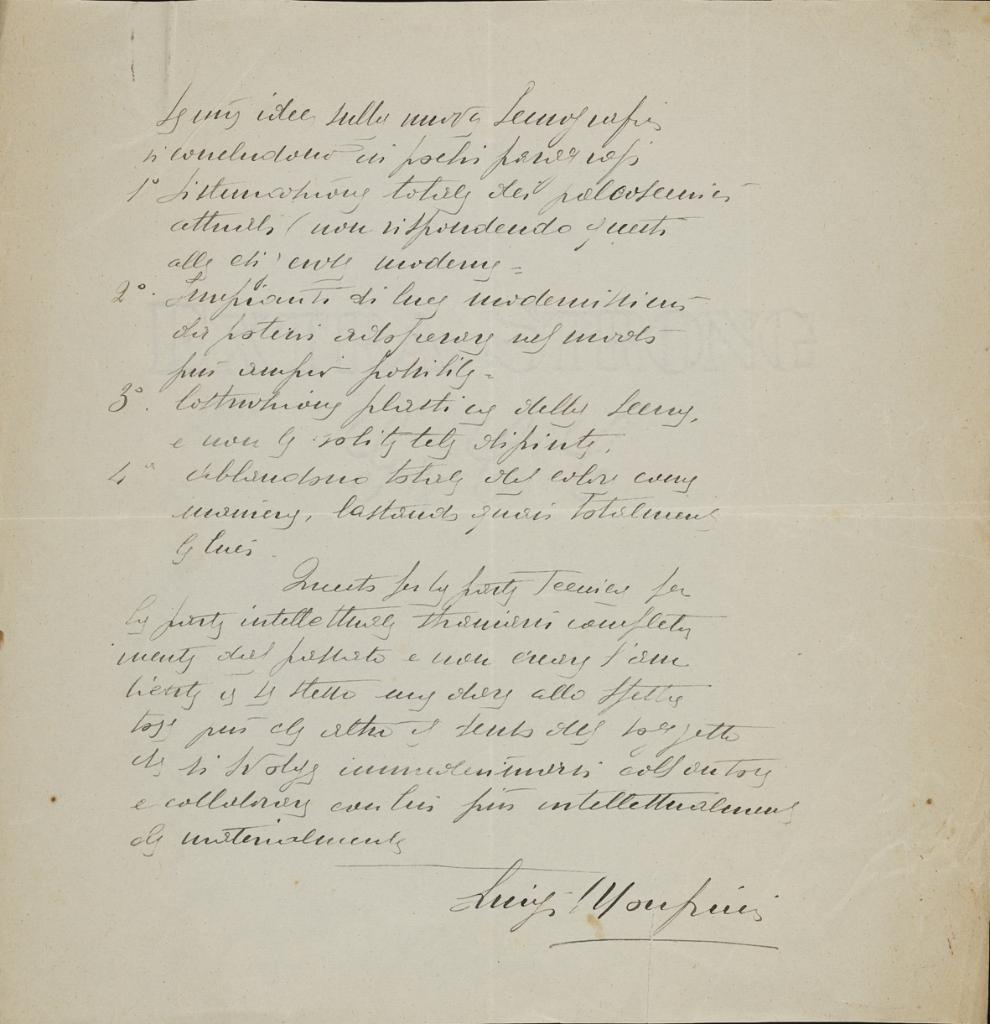 Le mie idee sulla nuova Scenografia
si concludono in pochi paragrafi
1° Sistemazione totale dei palcoscenici
attuali (non rispondendo questi
alle esigenze moderne =
2°. Impianti di luce modernissimi
da potersi adoperare nel modo
più ampio possibile =
3°. Costruzione plastica della scena,
e non le solite tele dipinte.
4° Abbandono totale del colore come
maniera, lasciando quasi totalmente
le luci.
Questo per la parte Tecnica per
la parte intellettuale straniarsi completa
mente dal passato e non creare l'am
biente a se stesso ma dare allo spetta
tore più che altro il senso del soggetto
che si svolge immedesimarsi coll'autore
e collaborare con lui più intellettualmente
che materialmente
Luigi